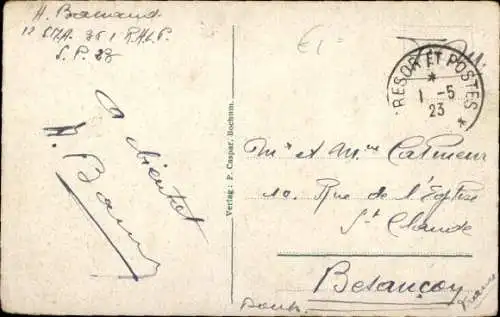 H. Barnaud
12 CIZA. 351 R.A.L.P.
S. P. 23
A bientot
H. Barn
Verlag: P. Caspar, Bochum.
£1=
TRESOR ET POSTES
*
1 -5
23
*
Mr et Mme Calmeur
10. Rue de l'Eglise
St Claude
Besançon
Doubs
France